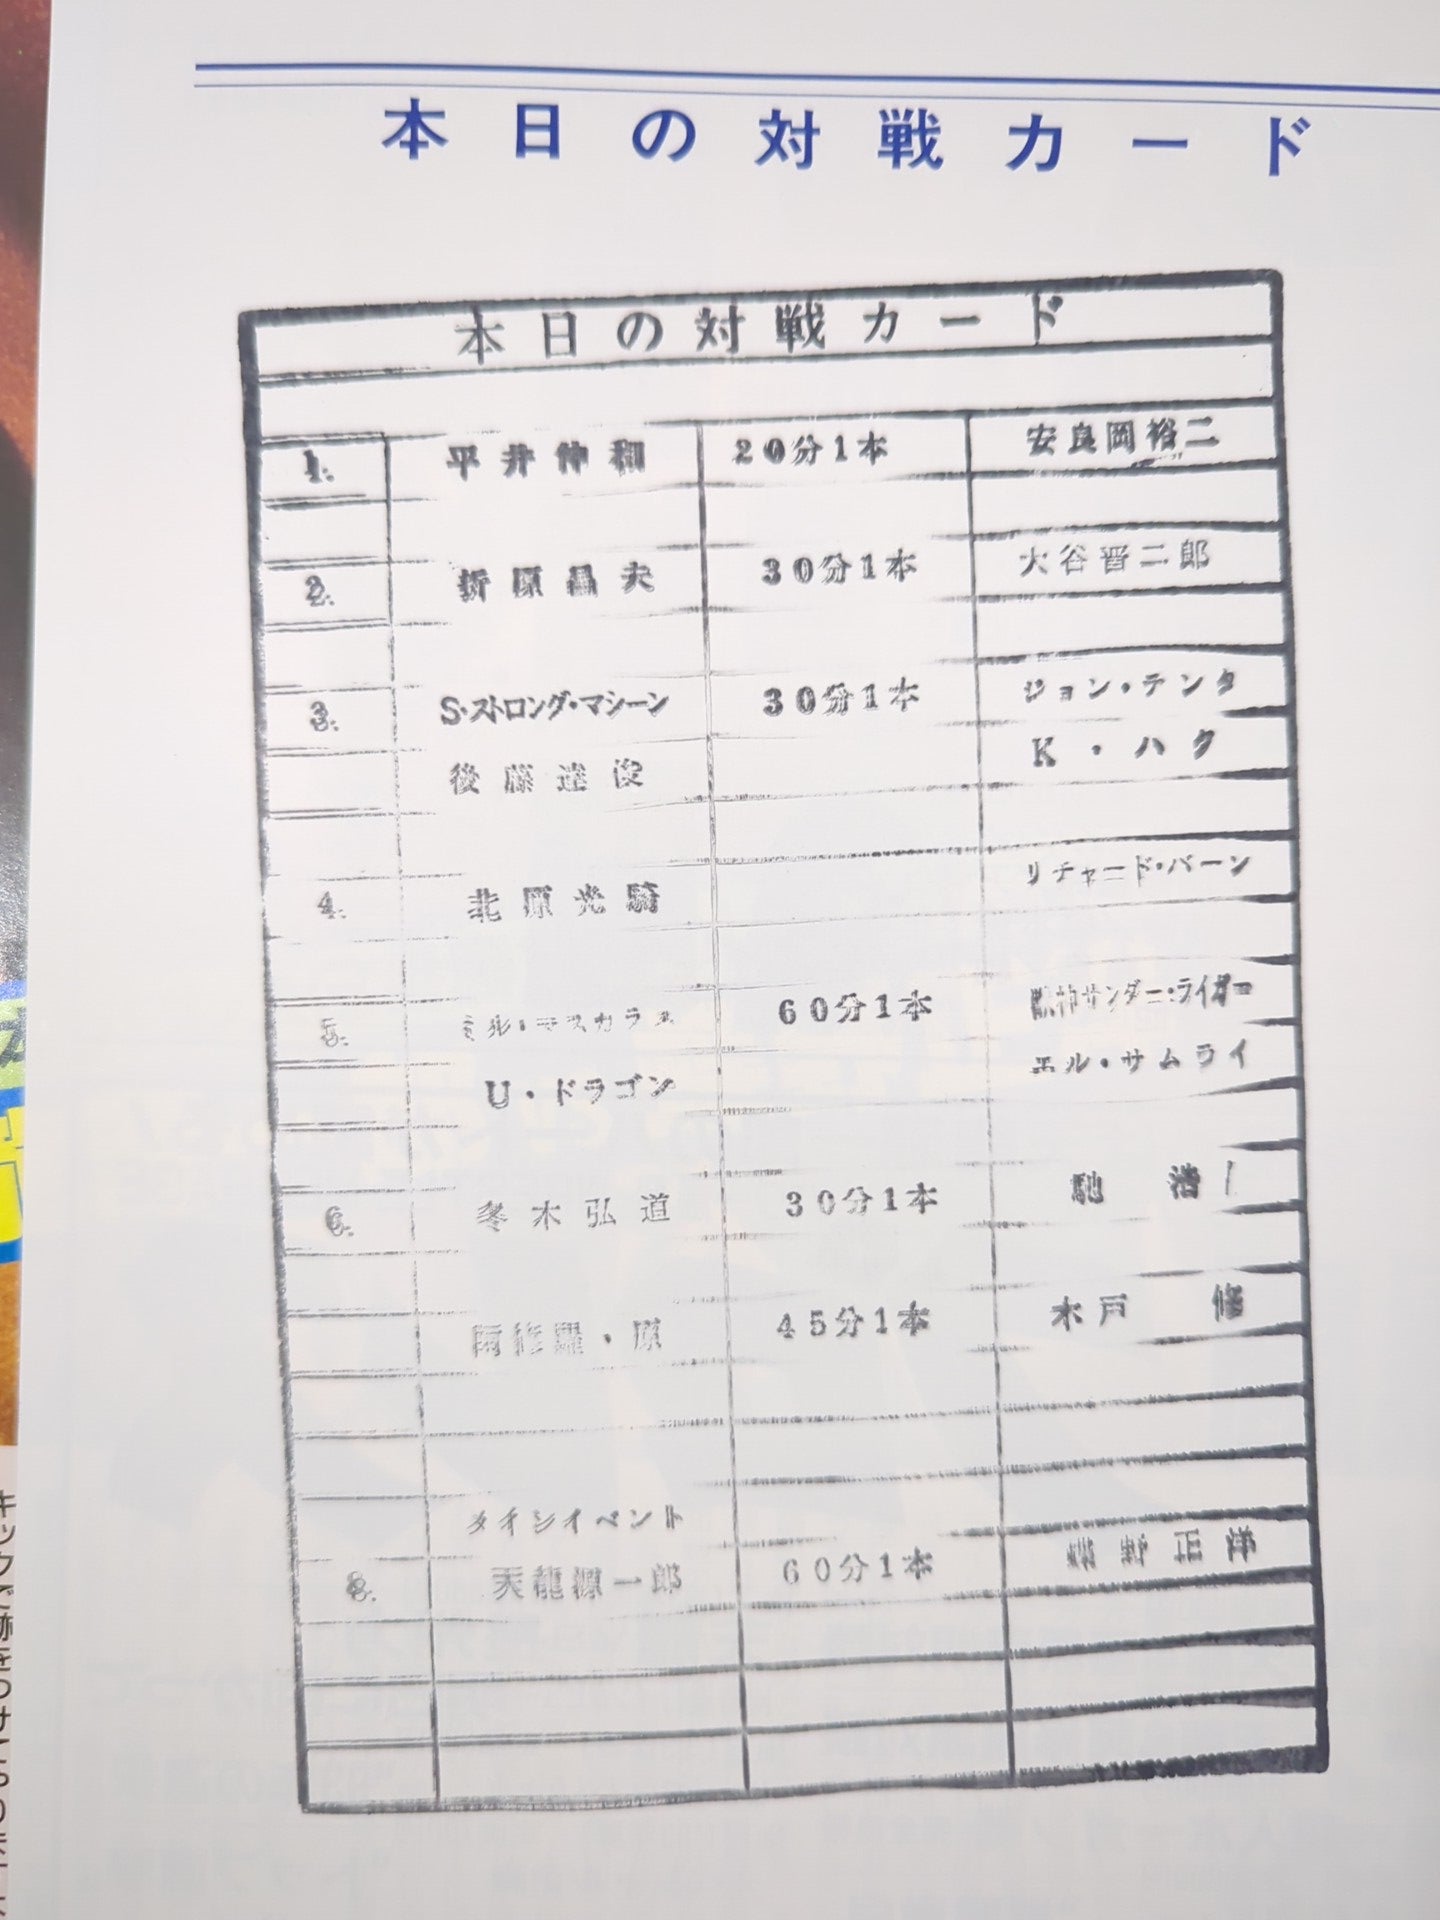 本日の対戦カード
本日の対戦カード
1. 平井伸和 20分1本 安良岡裕二
2. 折原昌夫 30分1本 大谷晋二郎
3. S・ストロング・マシーン 30分1本 ジョン・テンタ
後藤達俊 K・ハク
4. 北原光騎 リチャード・バーン
5. ミル・マスカラス 60分1本 獣神サンダー・ライガー
U・ドラゴン エル・サムライ
6. 冬木弘道 30分1本 馳浩
阿修羅・原 45分1本 木戸修
メインイベント
8. 天龍源一郎 60分1本 蝶野正洋